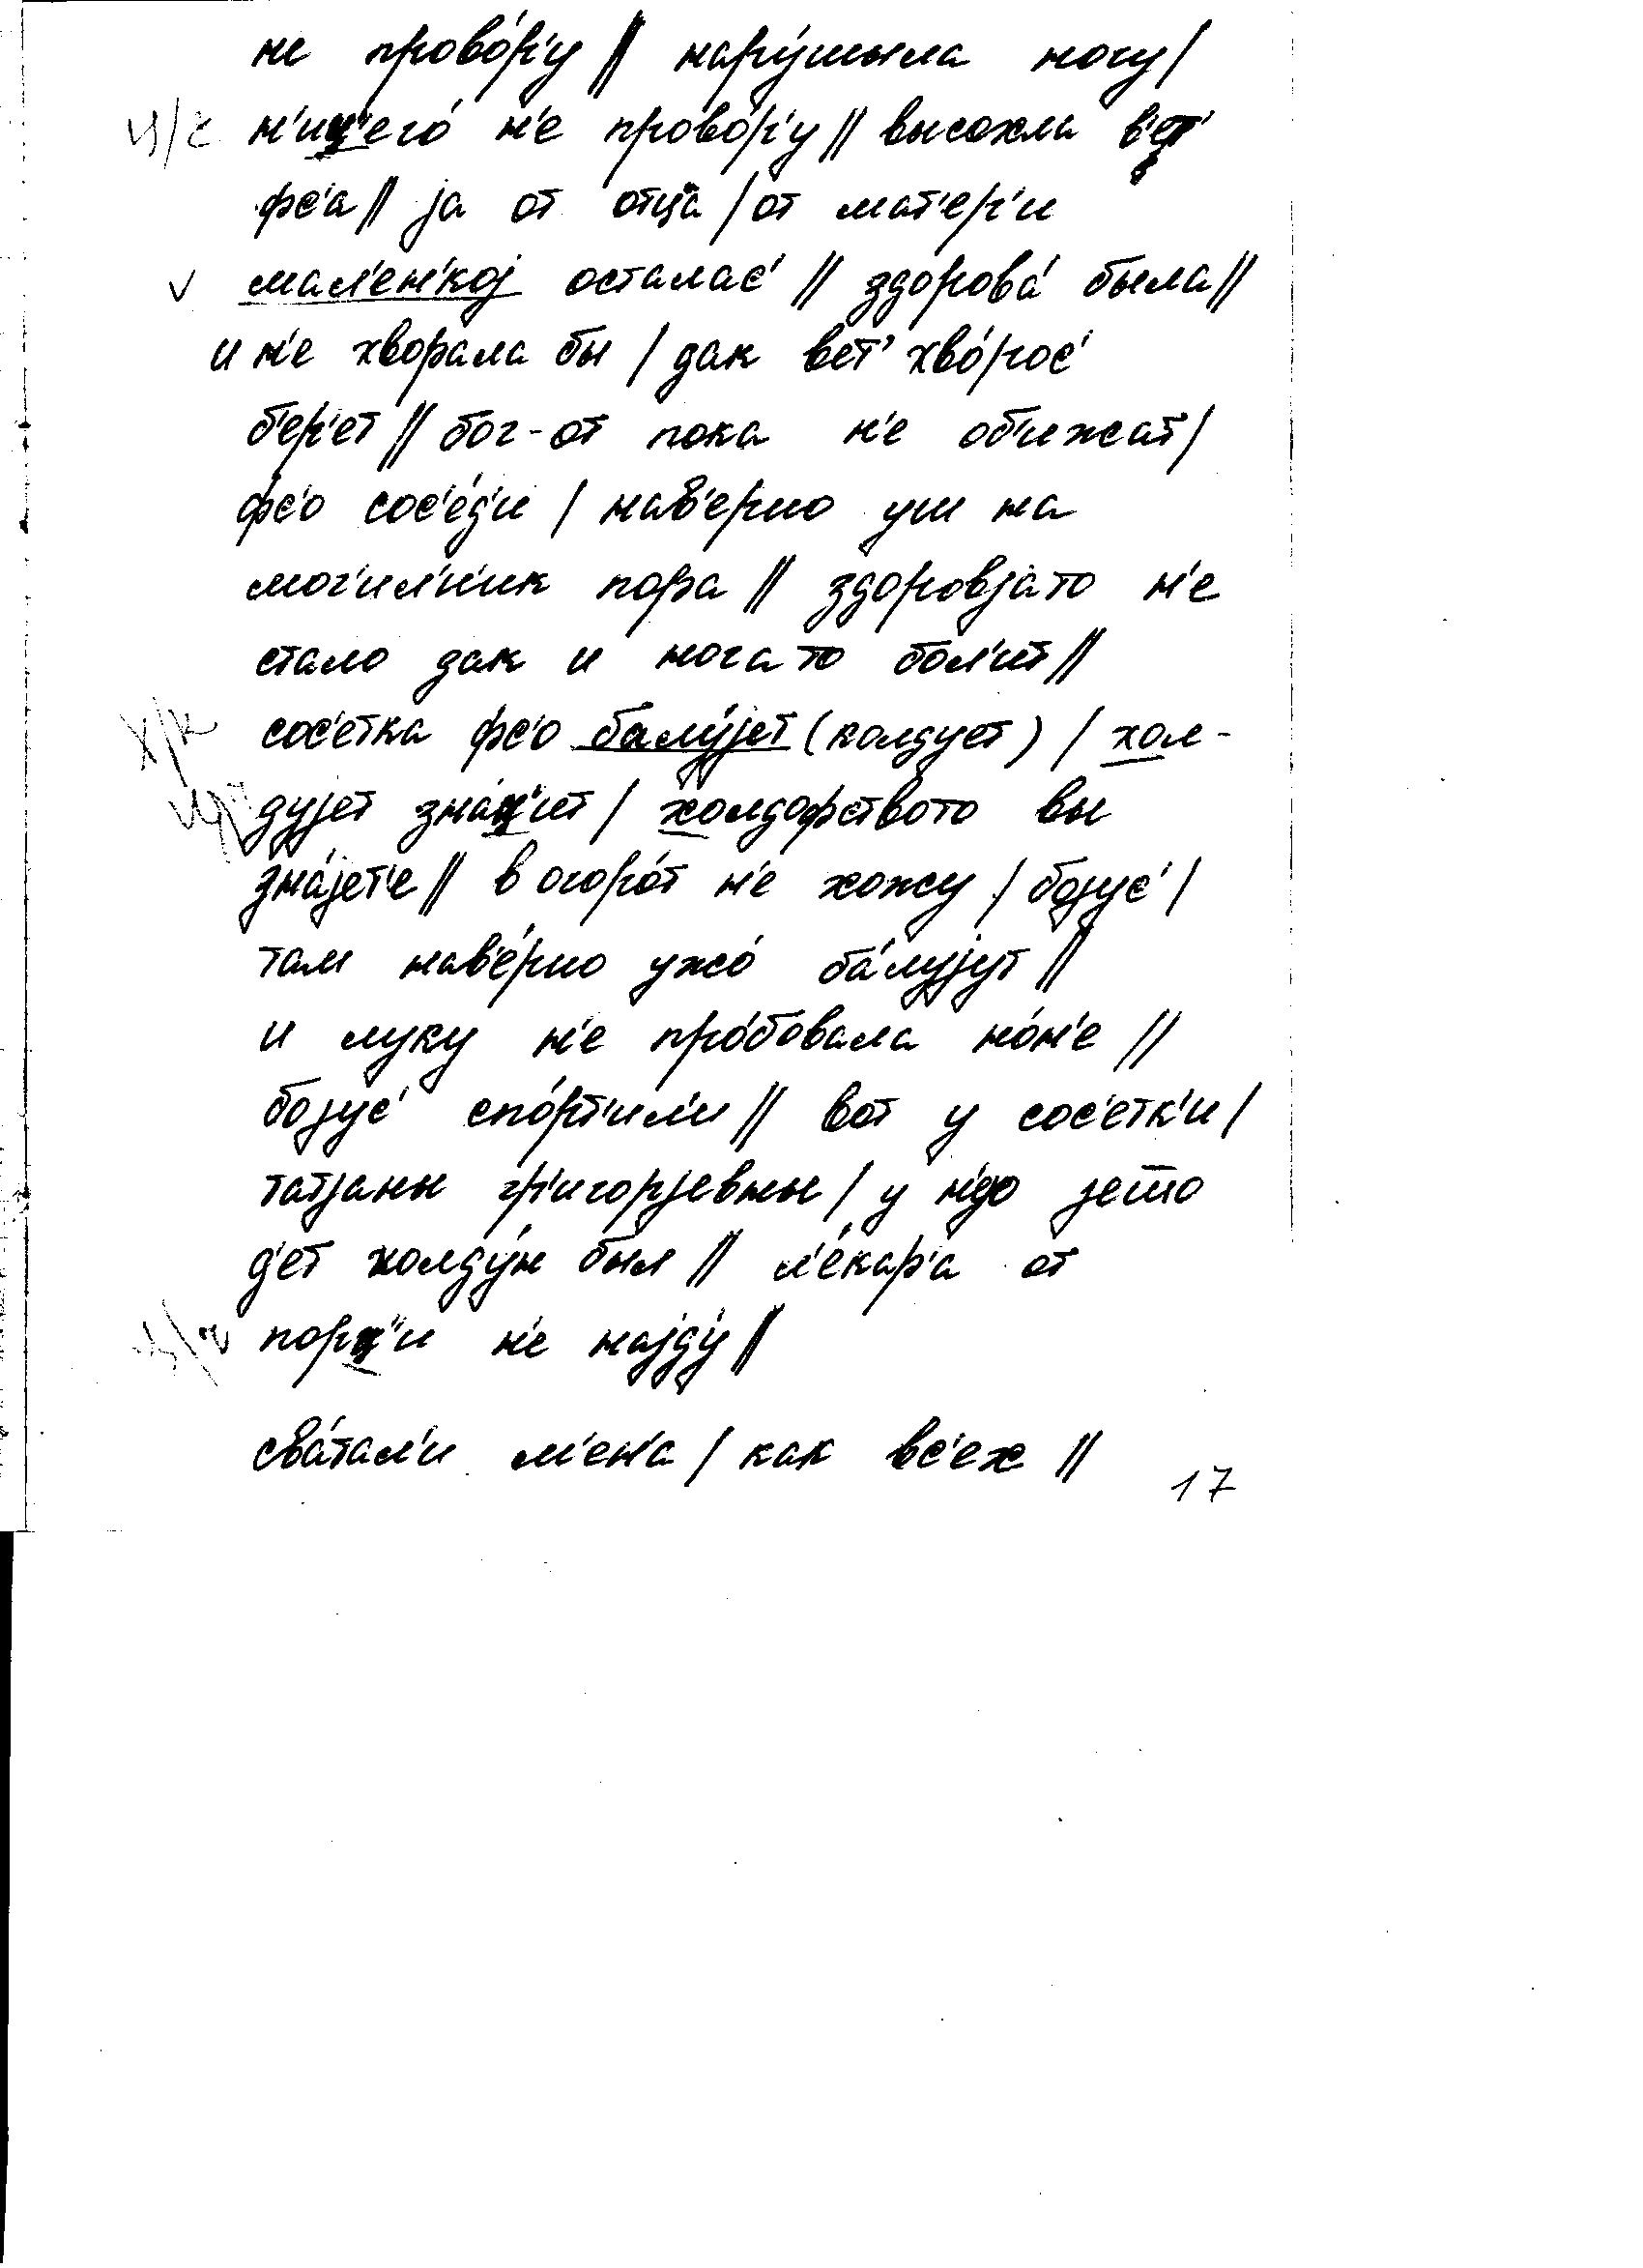 не прово́р'у // нару́шыла ногу /
ц/ч н'иц"его́ н'е прово́р'у // высохла в'ет'
фс'а // ја от отца / от мат'ер'и
✓ мал'ен'кој осталас' // здорова́ была //
и н'е хворала бы / дак вет' хво́рос'
б'ер'ет // бог-от пока н'е об'ижат /
фс'о сос'е́д'и / нав'ерно уш на
мог'ил'н'ик пора // здоровјато н'е
стало дак и ногато бол'ит //
х/к сос'етка фс'о балу́јет (колдует) / хол-
дујет зна́ц"ит / холдофството вы
зна́јет'е // в огоро́т н'е хожу / бојус' /
там нав'е́рно ужо́ ба́лујут //
и луку н'е про́бовала но́н'е //
бојус' спо́рт'ил'и // вот у сос'етк'и /
татјаны гр'игорјевны / у н'ејо јешо
д'ет холду́н был // л'е́кар'а от
ц/ч порц"и н'е најду́ //
сва́тал'и м'ен'а / как вс'ех //
17